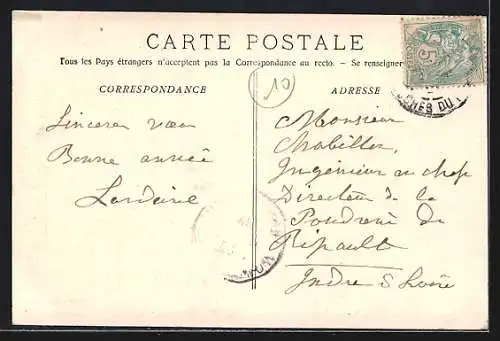 CARTE POSTALE
Tous les Pays étrangers n'acceptent pas la Correspondance au recto. - Se renseigner
CORRESPONDANCE
Sincères vœux
Bonne année
10
ADRESSE
Monsieur
Ingénieur en chef
Directeur de la
Poudrerie du
Ripault
Indre & Loire
5